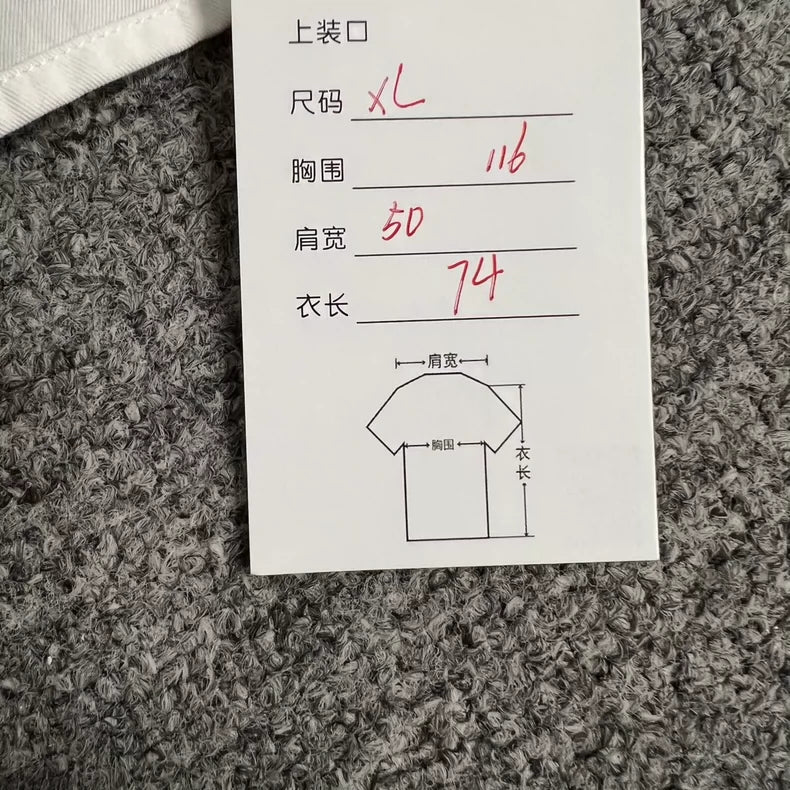 上装□
尺码 XL
胸围 116
肩宽 50
衣长 74
肩宽
胸围
衣长